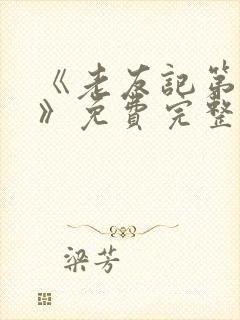 《老友記第
》免費完整
梁芳